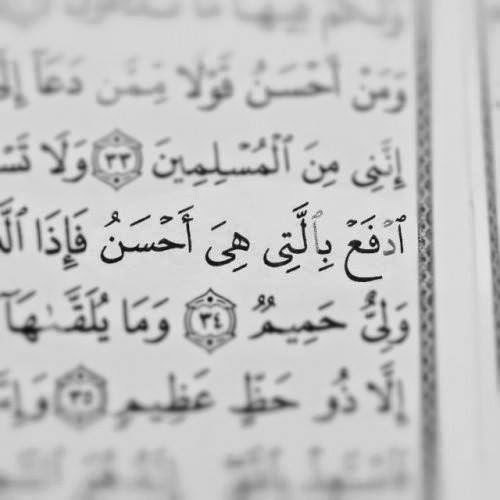 وَلَكُمْ فِيهَا مَا
وَمَنْ أَحْسَنُ قَوْلًا مِّمَّن دَعَآ إِلَى
إِنَّنِى مِنَ ٱلْمُسْلِمِينَ ٣٣ وَلَا تَسْ
ٱدْفَعْ بِٱلَّتِى هِىَ أَحْسَنُ فَإِذَا ٱلَّ
وَلِىٌّ حَمِيمٌ ٣٤ وَمَا يُلَقَّىٰهَآ
إِلَّا ذُو حَظٍّ عَظِيمٍ ٣٥ وَإِمَّ